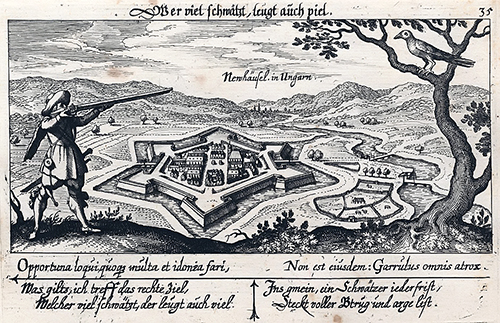 Wer viel schwätzt, leugt auch viel.
35
Newhäusel. in Ungarn.
Opportuna loqui, quoq; multa et idonea fari,
Non est eiusdem: Garrulus omnis atrox.
Was gilts, ich treff das rechte Ziel,
Welcher viel schwätzt, der leugt auch viel.
Ins gmein, ein Schwätzer ieder frist,
Steckt voller Btrüg und arge list.